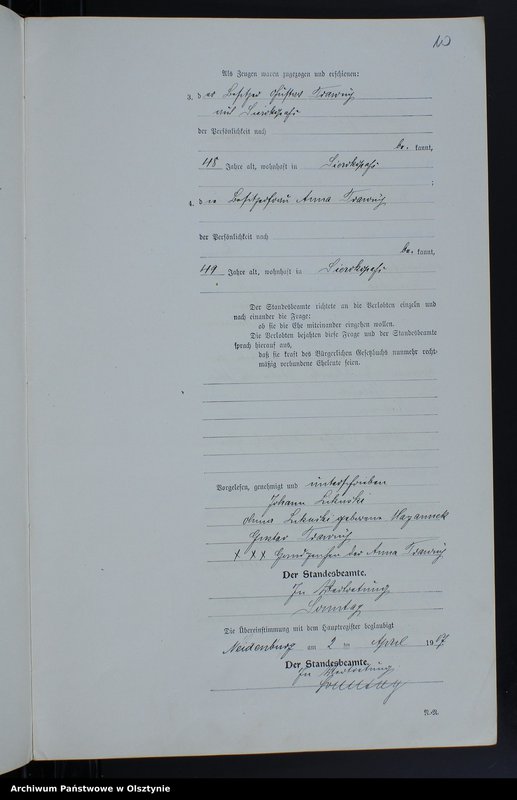 10
Als Zeugen waren zugezogen und erschienen:
3. der Besitzer Gustav
aus
der Persönlichkeit nach
be kannt,
45 Jahre alt, wohnhaft in
;
4. die Besitzerfrau Anna
der Persönlichkeit nach
be kannt,
49 Jahre alt, wohnhaft in
Der Standesbeamte richtete an die Verlobten einzeln und
nach einander die Frage:
ob sie die Ehe miteinander eingehen wollen.
Die Verlobten bejahten diese Frage und der Standesbeamte
sprach hierauf aus,
daß sie kraft des Bürgerlichen Gesetzbuchs nunmehr recht-
mäßig verbundene Eheleute seien.
Vorgelesen, genehmigt und unterschrieben
Johann
Anna geborene
Gustav
+ + + Handzeichen der Anna
Der Standesbeamte.
In Vertretung
Sonntag
Die Übereinstimmung mit dem Hauptregister beglaubigt
Neidenburg am 2 ten April 1907
Der Standesbeamte.
In Vertretung
Sonntag
Archiwum Państwowe w Olsztynie